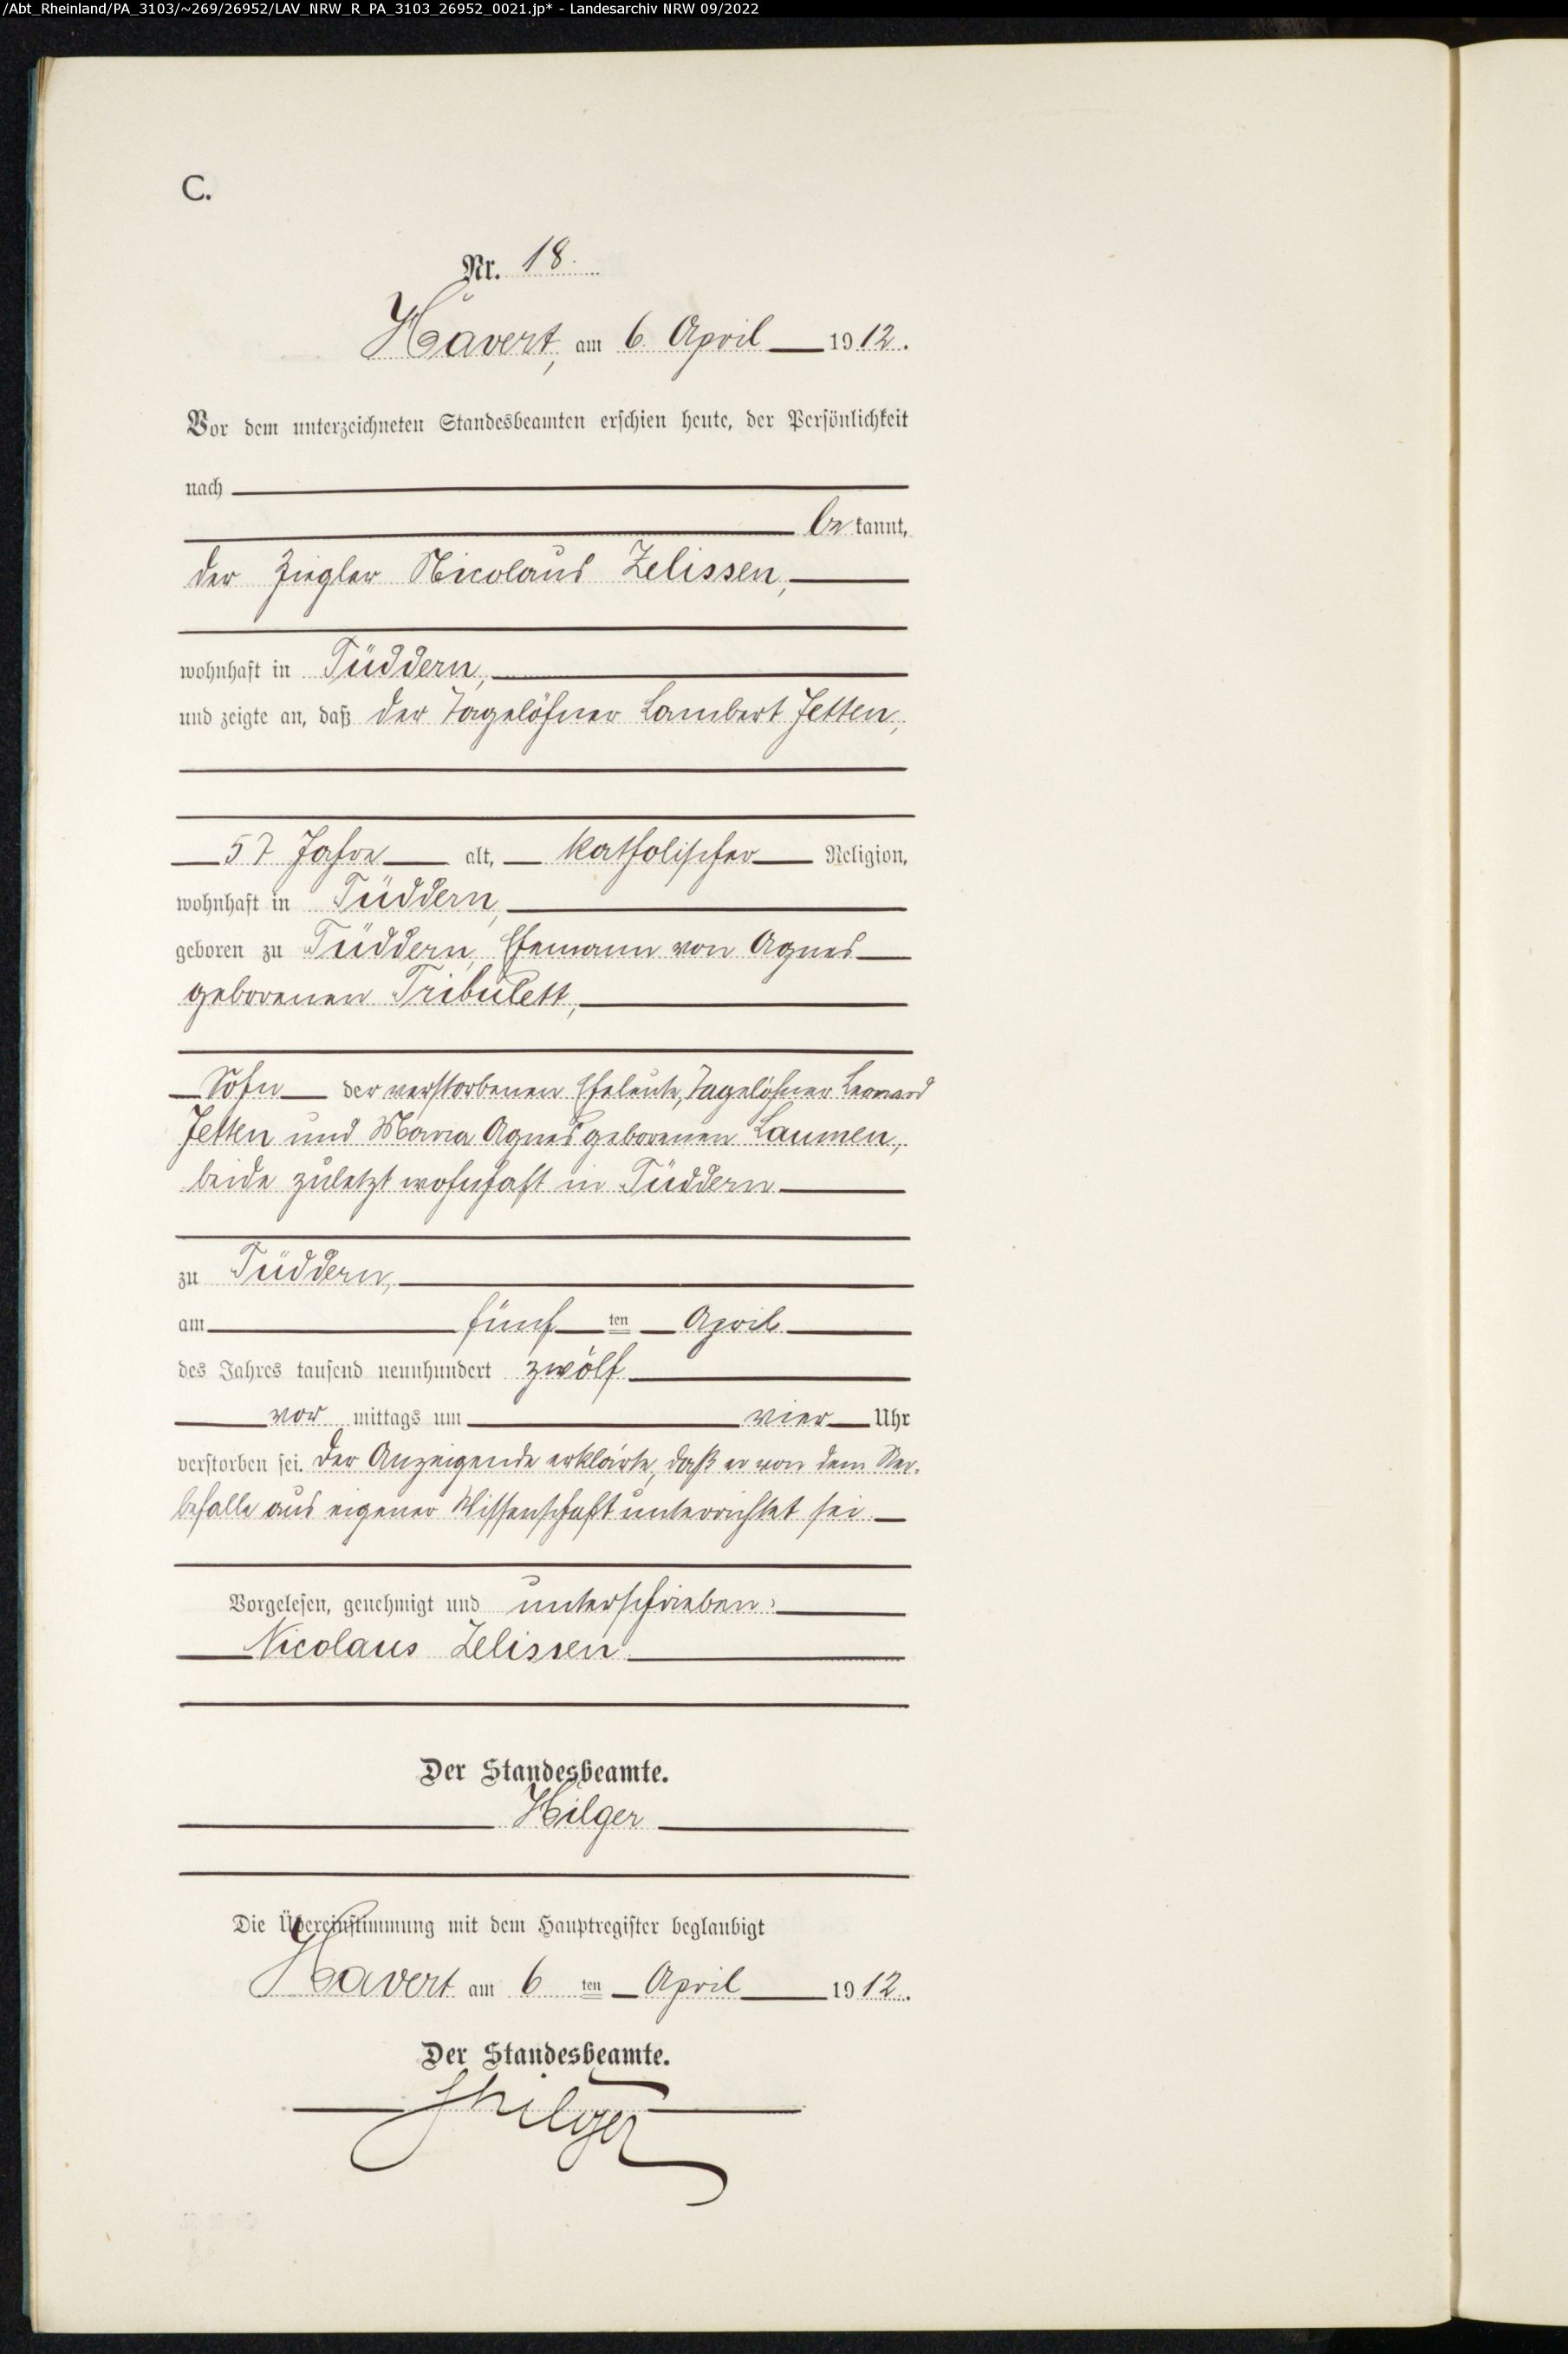 /Abt_Rheinland/PA_3103/~269/26952/LAV_NRW_R_PA_3103_26952_0021.jp* - Landesarchiv NRW 09/2022
C.
Nr. 18.
Havert, am 6. April 1912.
Vor dem unterzeichneten Standesbeamten erschien heute, der Persönlichkeit
nach
bekannt,
der Ziegler Nicolaus Zelissen,
wohnhaft in Tüddern,
und zeigte an, daß der Tagelöhner Lambert Jetten,
57 Jahre alt, katholischer Religion,
wohnhaft in Tüddern,
geboren zu Tüddern, Ehemann von Agnes
geborenen Tribulett,
Sohn der verstorbenen Eheleute, Tagelöhner Leonard
Jetten und Maria Agnes geborenen Laumen,
beide zuletzt wohnhaft in Tüddern
zu Tüddern,
am fünften April
des Jahres tausend neunhundert zwölf
vormittags um vier Uhr
verstorben sei. Der Anzeigende erklärte, daß er von dem Ster-
befalle aus eigener Wissenschaft unterrichtet sei.
Vorgelesen, genehmigt und unterschrieben:
Nicolaus Zelissen
Der Standesbeamte.
Hilger
Die Übereinstimmung mit dem Hauptregister beglaubigt
Havert am 6ten April 1912.
Der Standesbeamte.
Hilger